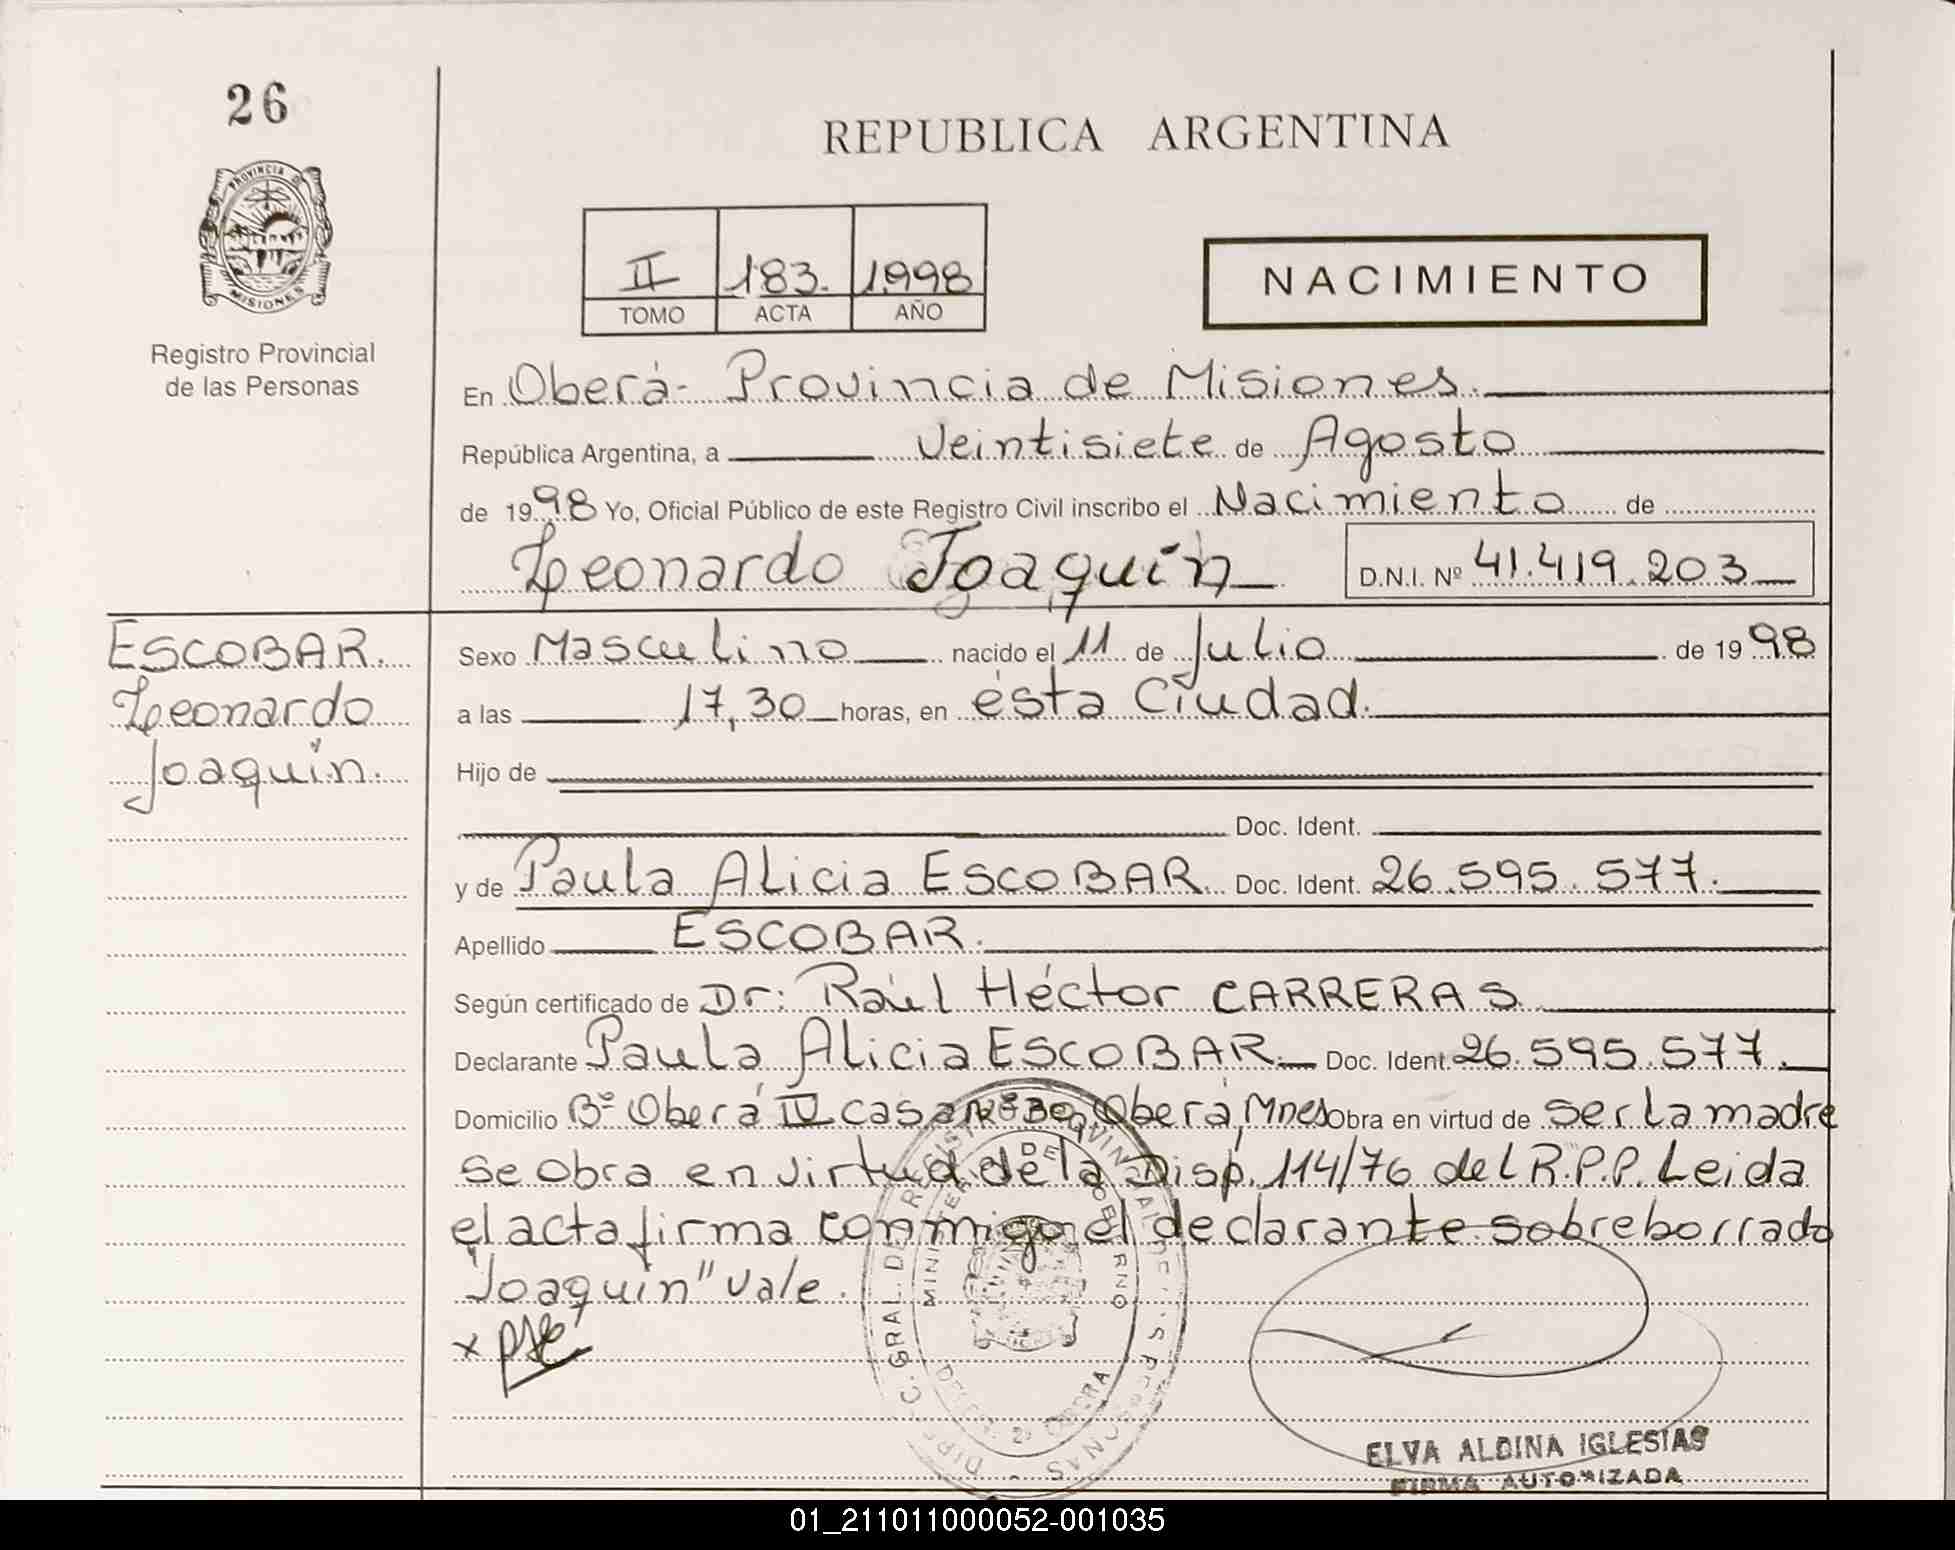 26
REPUBLICA ARGENTINA
PROVINCIA D
MISIONES
Registro Provincial
de las Personas
II 183. 1998
TOMO ACTA AÑO
NACIMIENTO
En Oberá - Provincia de Misiones.
República Argentina, a veintisiete de Agosto
de 1998 Yo, Oficial Público de este Registro Civil inscribo el Nacimiento de
Leonardo Joaquín D.N.I. Nº 41.419.203
ESCOBAR.
Leonardo
Joaquín.
Sexo Masculino nacido el 11 de Julio de 1998
a las 17,30 horas, en ésta Ciudad.
Hijo de
Doc. Ident.
y de Paula Alicia ESCOBAR Doc. Ident. 26.595.577.
Apellido ESCOBAR.
Según certificado de Dr: Raúl Héctor CARRERAS
Declarante Paula Alicia ESCOBAR. Doc. Ident. 26.595.577.
Domicilio Bº Oberá IV casa Nº 30, Oberá, Mnes Obra en virtud de ser la madre
se obra en virtud de la Disp. 114/76 del R.P.P. Leida
el acta firma conmigo el declarante sobreborrado
"Joaquín" vale.
x
ELVA ALDINA IGLESIAS
FIRMA AUTORIZADA
01_211011000052-001035